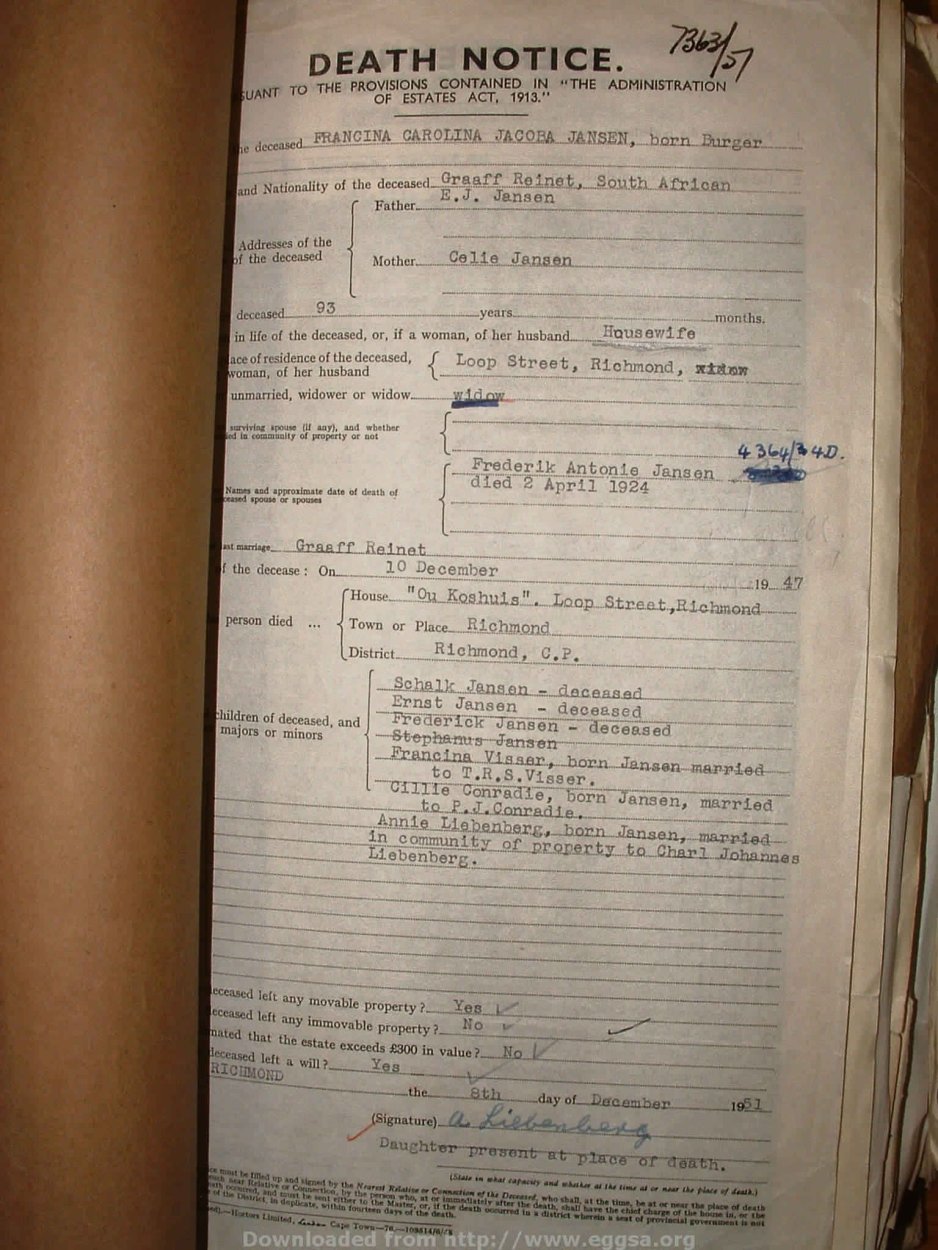 7363/51
DEATH NOTICE.
SUANT TO THE PROVISIONS CONTAINED IN "THE ADMINISTRATION
OF ESTATES ACT, 1913."
he deceased FRANCINA CAROLINA JACOBA JANSEN, born Burger
and Nationality of the deceased Graaff Reinet, South African
Father E.J. Jansen
Addresses of the
of the deceased
Mother Celie Jansen
deceased 93 years months.
in life of the deceased, or, if a woman, of her husband Housewife
ace of residence of the deceased,
woman, of her husband
Loop Street, Richmond,
unmarried, widower or widow widow
surviving spouse (if any), and whether
ied in community of property or not
4364/34D.
Frederik Antonie Jansen
died 2 April 1924
Names and approximate date of death of
ceased spouse or spouses
ast marriage Graaff Reinet
f the decease: On 10 December 1947
House "Ou Koshuis". Loop Street, Richmond
person died ... Town or Place Richmond
District Richmond, C.P.
Schalk Jansen - deceased
Ernst Jansen - deceased
children of deceased, and
majors or minors
Frederick Jansen - deceased
Stephanus Jansen
Francina Visser, born Jansen married
to T.R.S.Visser.
Cillie Conradie, born Jansen, married
to P.J.Conradie.
Annie Liebenberg, born Jansen, married
in community of property to Charl Johannes
Liebenberg.
eceased left any movable property? Yes
eceased left any immovable property? No
mated that the estate exceeds £300 in value? No
deceased left a will? Yes
RICHMOND
the 8th day of December 1951
(Signature) A. Liebenberg
Daughter present at place of death.
(State in what capacity and whether at the time at or near the place of death.)
ce must be filled up and signed by the Nearest Relative or Connection of the Deceased, who shall, at the time, be at or near the place of death
such near Relative or Connection, by the person who, at or immediately after the death, shall have the chief charge of the house in, or the
ath occurred, and must be sent either to the Master, or, if the death occurred in a district wherein a seat of provincial government is not
of the District, in duplicate, within fourteen days of the death.
Hortors Limited, Cape Town
Downloaded from http://www.eggsa.org